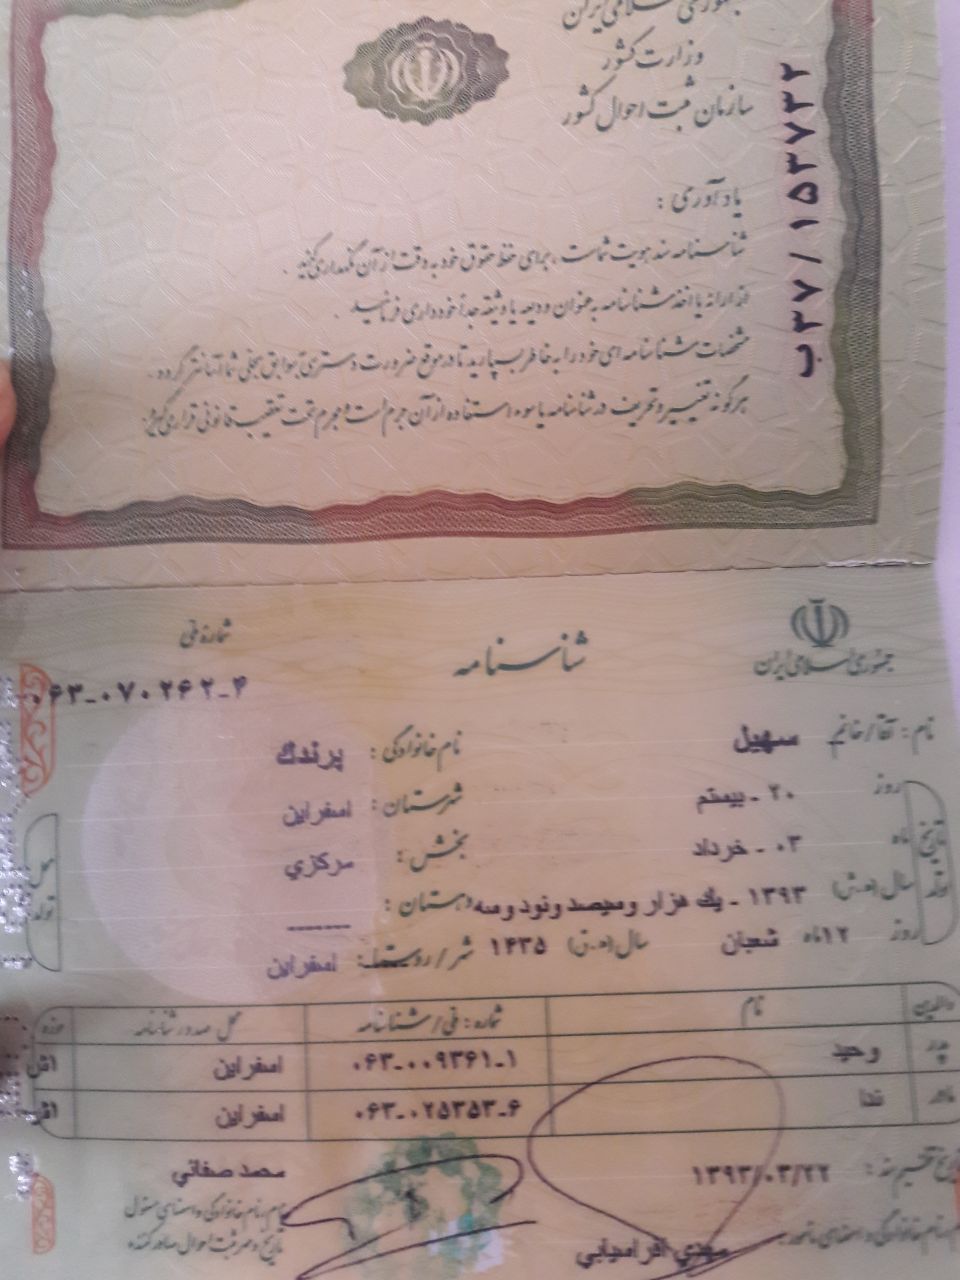 جمهوری اسلامی ایران
وزارت کشور
سازمان ثبت احوال کشور
ب۳۷/۱۵۳۷۳۲
یادآوری :
شناسنامه سند هویت شماست ، برای حفظ حقوق خود به دقت از آن نگهداری کنید .
از ارائه یا اخذ شناسنامه به عنوان ودیعه یا وثیقه جداً خودداری فرمائید .
مشخصات شناسنامه ای خود را به خاطر بسپارید تا در موقع ضرورت دسترسی به سوابق سجلی شما آسانتر گردد .
هرگونه تغییر و تحریف در شناسنامه یا سوء استفاده از آن جرم است و مجرم تحت تعقیب قانونی قرار می گیرد .
جمهوری اسلامی ایران
شناسنامه
شماره ملی
۰۶۳-۰۷۰۲۶۲-۴
نام : آقا/خانم سهیل نام خانوادگی : پرندك
تاریخ تولد
روز ۲۰ - بیستم
شهرستان : اسفراین
محل تولد
ماه ۰۳ - خرداد
بخش : مرکزي
سال (ه.ش) ۱۳۹۳ - یك هزار وسیصد ونود وسه
دهستان : -------
روز ۱۲ ماه شعبان سال (ه.ق) ۱۴۳۵
شهر/روستا : اسفراین
والدین نام شماره : ملی/شناسنامه محل صدور شناسنامه حوزه
پدر وحید ۰۶۳-۰۰۹۳۶۱-۱ اسفراین
مادر ندا ۰۶۳-۰۲۵۳۵۳-۶ اسفراین
تاریخ تنظیم سند : ۱۳۹۳/۰۳/۲۲
محمد صفائي
نام، نام خانوادگی و امضای مسئول
تاریخ و مهر ثبت احوال صادر کننده
نام، نام خانوادگی و امضای مأمور : مهدي افراسیابي